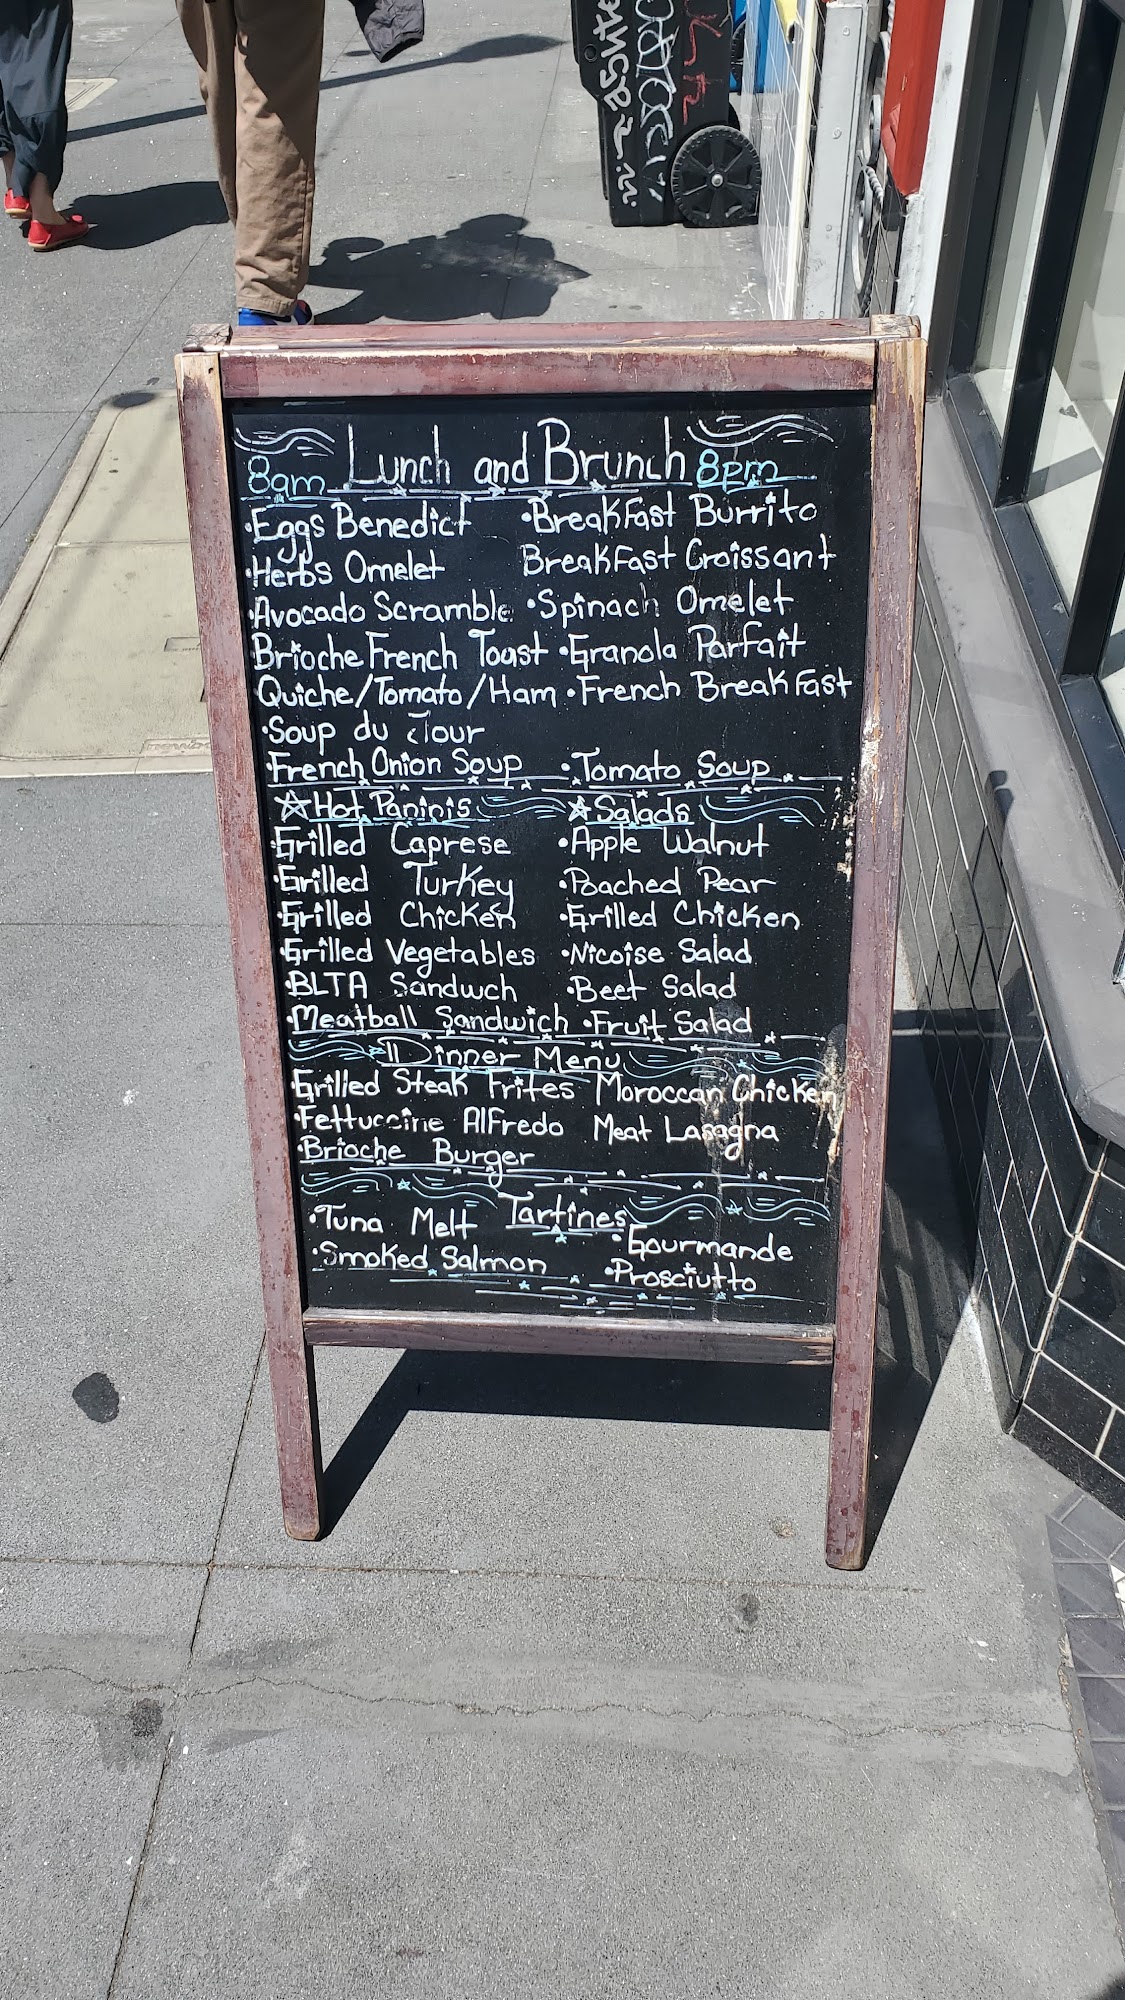 8am Lunch and Brunch 8pm
•Eggs Benedict •Breakfast Burrito
•Herbs Omelet Breakfast Croissant
•Avocado Scramble •Spinach Omelet
Brioche French Toast •Granola Parfait
Quiche/Tomato/Ham •French Breakfast
•Soup du Jour
•French Onion Soup •Tomato Soup
☆Hot Paninis ☆Salads
•Grilled Caprese •Apple Walnut
•Grilled Turkey •Poached Pear
•Grilled Chicken •Grilled Chicken
•Grilled Vegetables •Nicoise Salad
•BLTA Sandwch •Beet Salad
•Meatball Sandwich •Fruit Salad
Dinner Menu
•Grilled Steak Frites Moroccan Chicken
•Fettuccine Alfredo Meat Lasagna
•Brioche Burger
Tartines
•Tuna Melt •Gourmande
•Smoked Salmon •Prosciutto